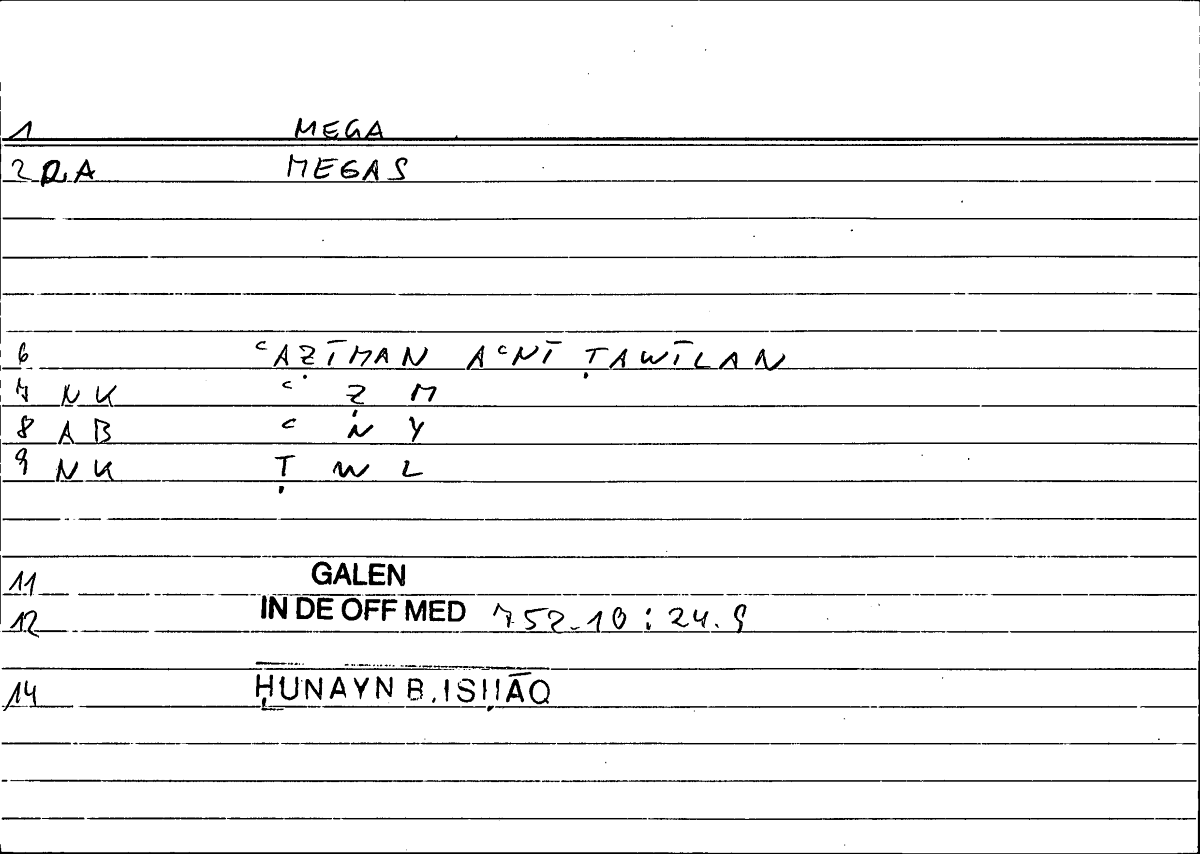 1 MEGA
2 D.A MEGAS
6 ʿAẒĪMAN AʿNĪ ṬAWĪLAN
7 NK ʿ Ẓ M
8 AB ʿ N Y
9 NK Ṭ W L
11 GALEN
12 IN DE OFF MED 752.10 : 24.9
14 ḤUNAYN B. ISḤĀQ